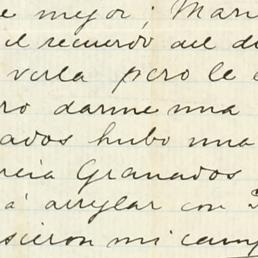 e mejor; Mar
el recuerdo del d
verla pero le
ro darme una
ados hubo una
reia Granados
á arreglar con
sieron mi cam